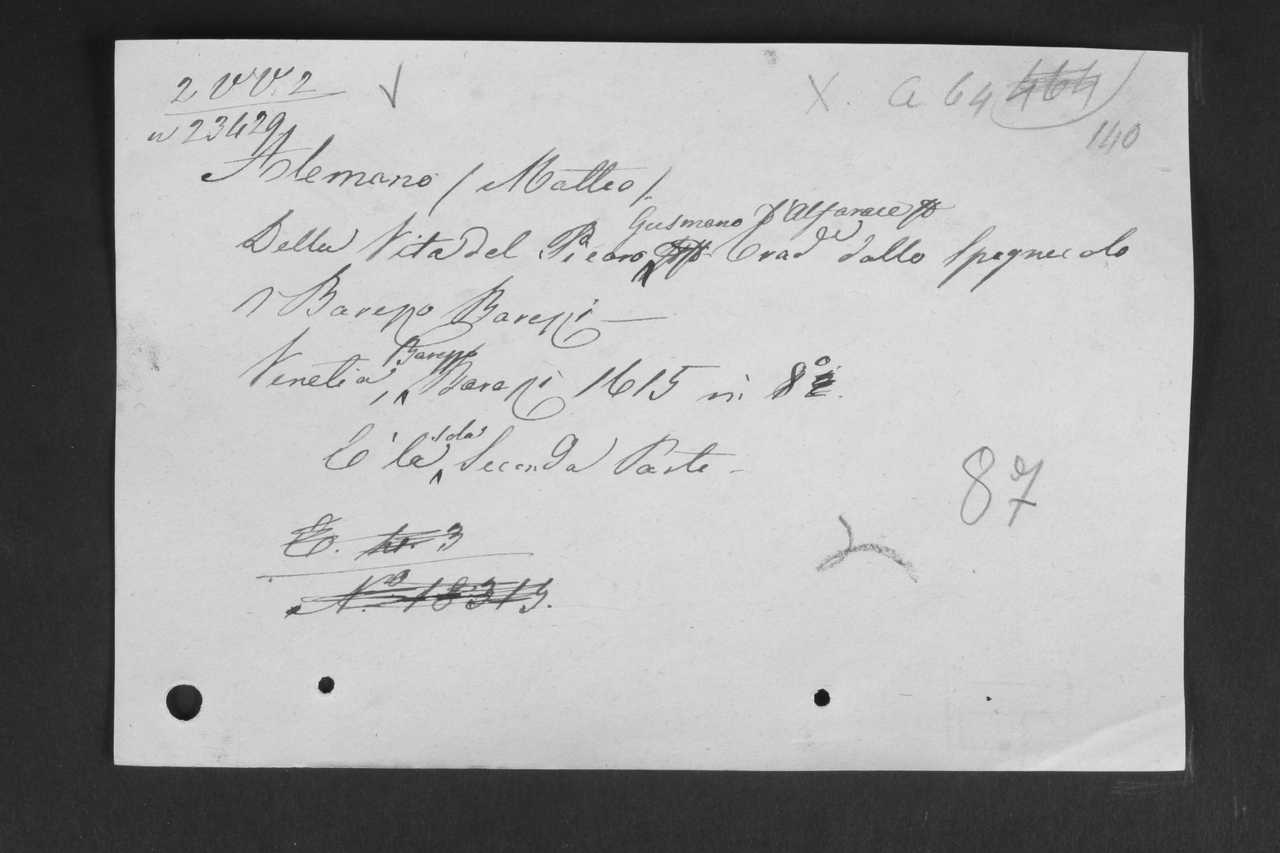 2 VV. 2
n 23429
X. a 64 464
140
Alemano (Matteo).
Gusmano d'Alfarace
Della Vita del Picaro Trad.e dallo Spagnuolo
Barezzo Barezzi —
Barezzo
Venetia, Barezzi 1615 in 8.º
sola
È la Seconda Parte -
87
E. 3
N.º 18313.